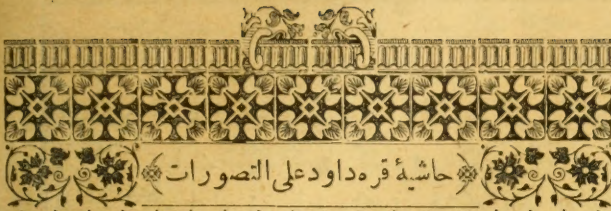 حاشيهٔ قره داود على التصورات